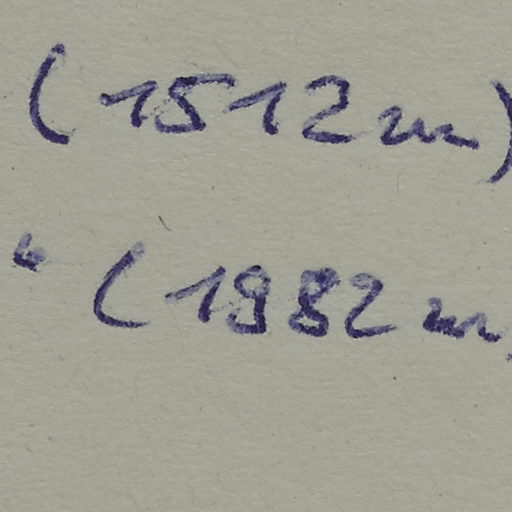 (1512 m)
" (1982 m